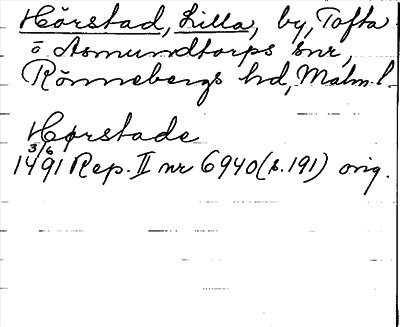 Hörstad, Lilla, by, Tofta
o Asmundtorps snr,
Rönnebergs hd, Malm. l.
Hørstade
3/6
1491 Rep. II nr 6940 (s. 191) orig.